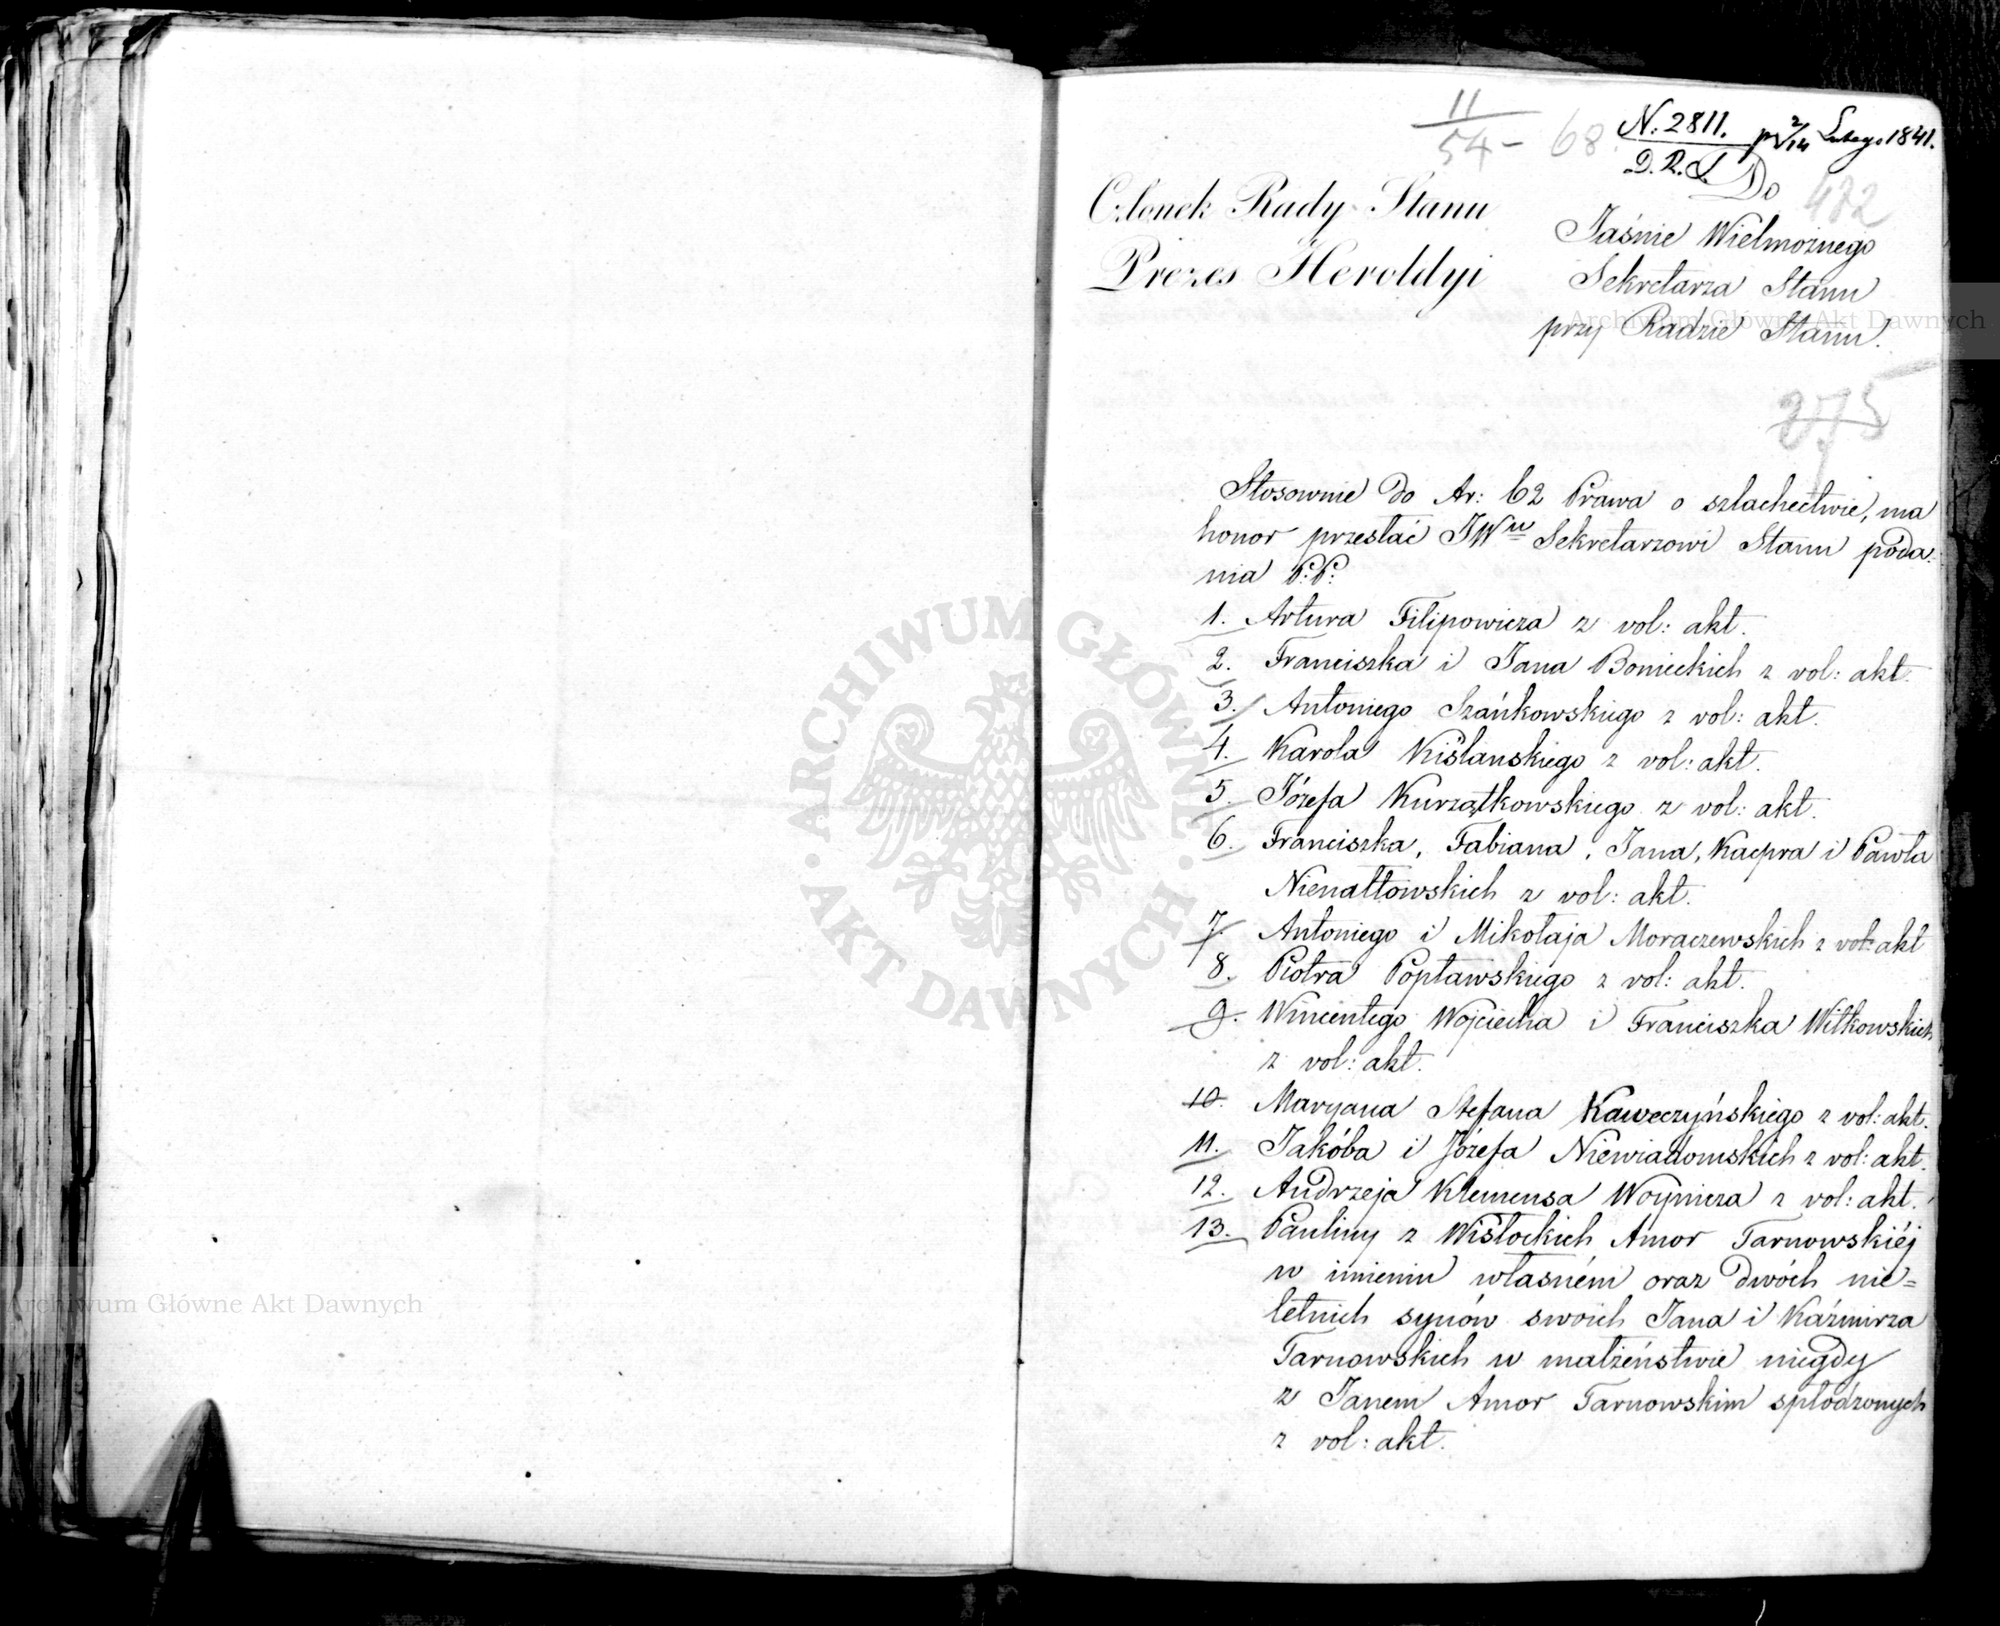 11
54 - 68.
N: 2811. p 2/14 Lutego 1841.
D. R. S.
Do
472
Członek Rady Stanu
Prezes Heroldyi
Jaśnie Wielmożnego
Sekretarza Stanu
przy Radzie Stanu.
275
Stosownie do Ar: 62 Prawa o szlachectwie, ma
honor przesłać JWu Sekretarzowi Stanu poda:
nia P:P:
1. Artura Filipowicza z vol: akt.
2. Franciszka i Jana Bonieckich z vol: akt.
3. Antoniego Szańkowskiego z vol: akt.
4. Karola Kiślanskiego z vol: akt.
5. Józefa Kurzątkowskiego z vol: akt.
6. Franciszka, Fabiana, Jana, Kacpra i Pawła
Nienałtowskich z vol: akt.
7. Antoniego i Mikołaja Moraczewskich z vol: akt
8. Piotra Popławskiego z vol: akt.
9. Wincentego Wojciecha i Franciszka Witkowskich
z vol: akt.
10. Maryana Stefana Kaweczyńskiego z vol: akt.
11. Jakóba i Józefa Niewiadomskich z vol: akt.
12. Andrzeja Klemensa Woynicza z vol: akt.
13. Pauliny z Wisłockich Amor Tarnowskiéj
w imieniu własném oraz dwóch nie=
letnich synów swoich Jana i Kaźmirza
Tarnowskich w małżeństwie niegdy
z Janem Amor Tarnowskim spłodzonych
z vol: akt.
Archiwum Główne Akt Dawnych
Archiwum Główne Akt Dawnych
ARCHIWUM GŁÓWNE • AKT DAWNYCH •